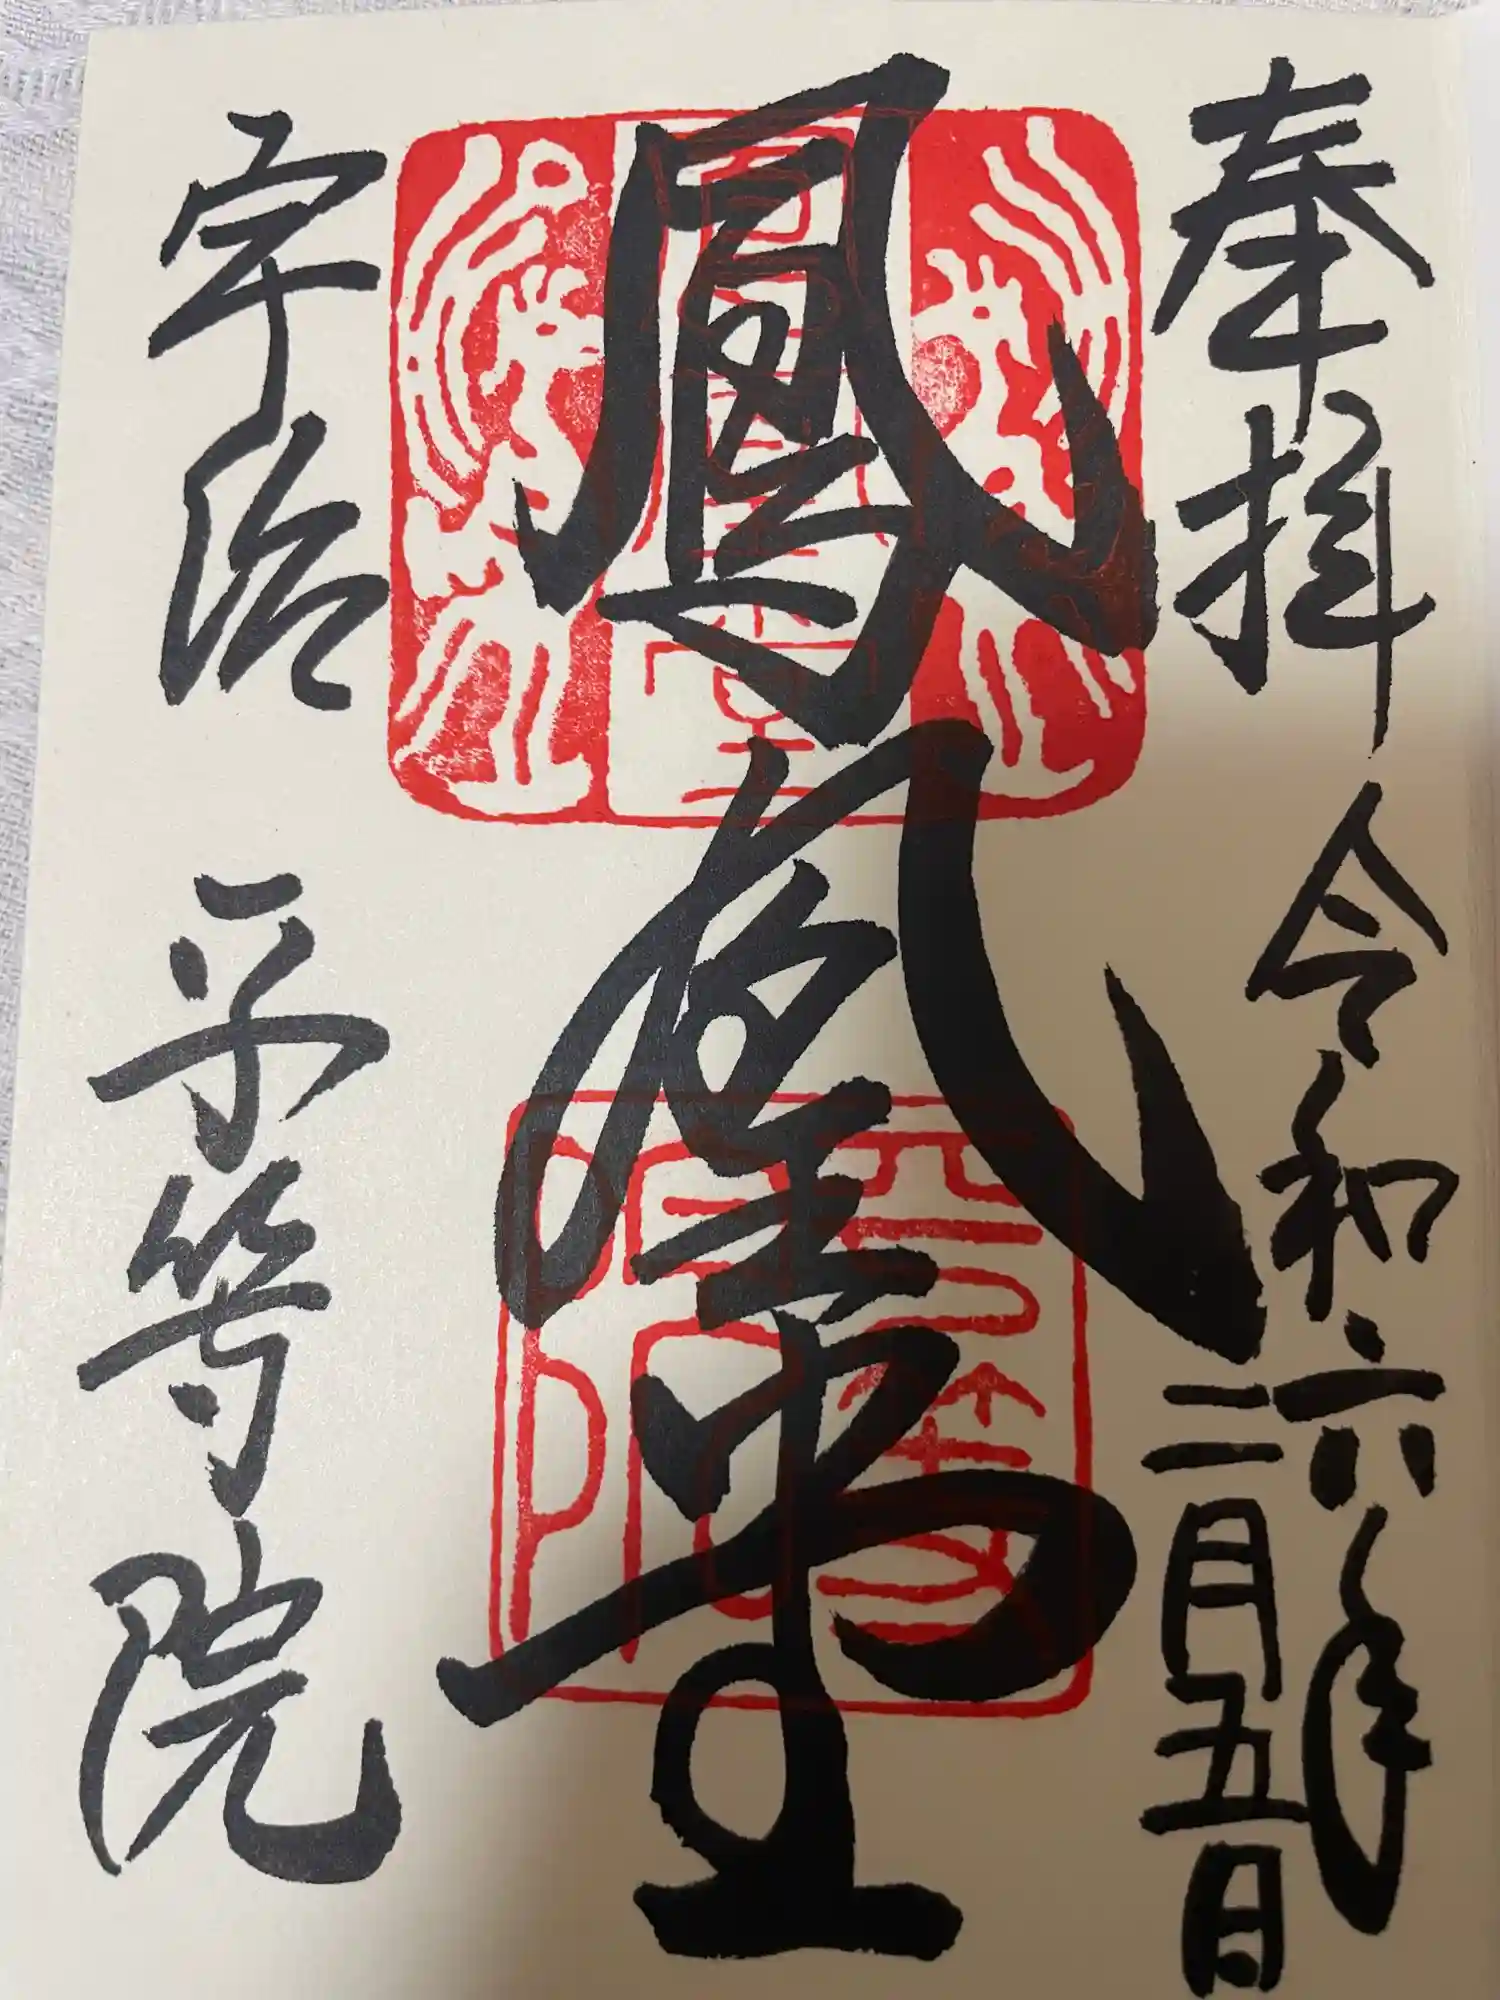 奉拝 令和六年
二月五日
鳳凰堂
宇治 平等院